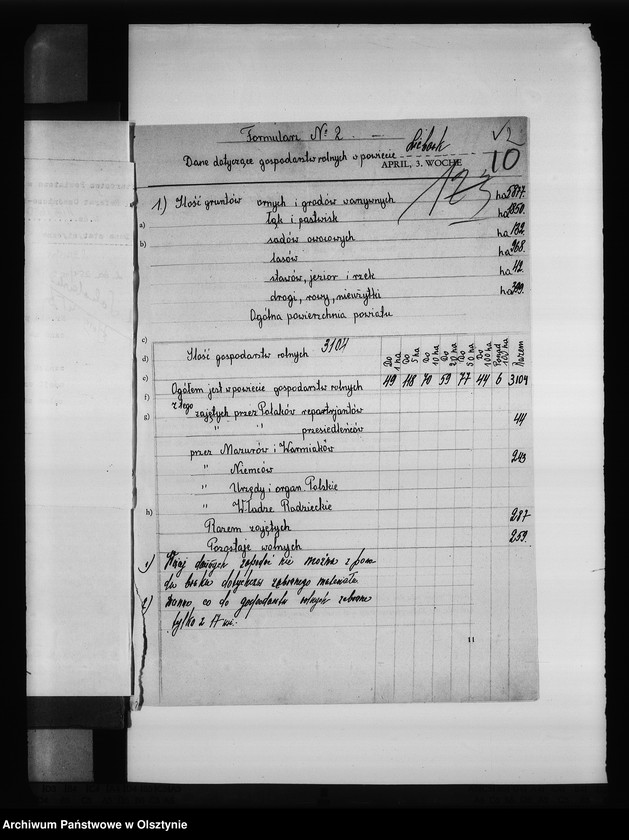 Formularz № 2.
Dane dotyczące gospodarstw rolnych w powiecie
APRIL, 3. WOCHE
10
123
1) Ilość gruntów ornych i grodów warzywnych ha 5877.
łąk i pastwisk ha
a)
sadów owocowych ha 132.
b)
lasów ha 968.
stawów, jezior i rzek ha 42.
drogi, rowy, nieużytki ha
Ogólna powierzchnia powiatu
c)
d) Ilość gospodarstw rolnych 3104 Do 1 ha Do 5 ha Do 10 ha Do 20 ha Do 50 ha Do 100 ha Ponad 100 ha Razem
e) Ogółem jest w powiecie gospodarstw rolnych 49 118 70 59 77 44 6 3104
f) z tego
g) zajętych przez Polaków repatrjantów 44
" " przesiedleńców
przez Mazurów i Warmiaków 243
" Niemców
" Urzędy i organ. Polskie
h) " Władze Radzieckie
Razem zajętych 287
Pozostaje wolnych 259.
danych nie można z
braku dotychczas zebranego materiału
co do gospodarstw rolnych zebrano
tylko z 17
11
Archiwum Państwowe w Olsztynie